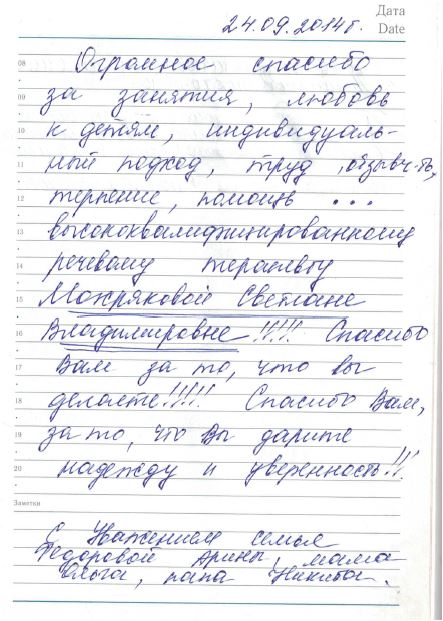 Дата
24.09.2014г. Date
08 Огромное спасибо
09 за занятия, любовь
10 к детям, индивидуаль-
11 ный подход, труд, отзывч-ть,
12 терпение, помощь ...
13 высококвалифицированному
14 речевому терапевту
15 Мокряковой Светлане
16 Владимировне!!!!! Спасибо
17 Вам за то, что вы
18 делаете!!!!! Спасибо Вам,
19 за то, что Вы дарите
20 надежду и уверенность!!!
Заметки
С Уважением семья
Федоровой Арины, мама
Ольга, папа Никита.